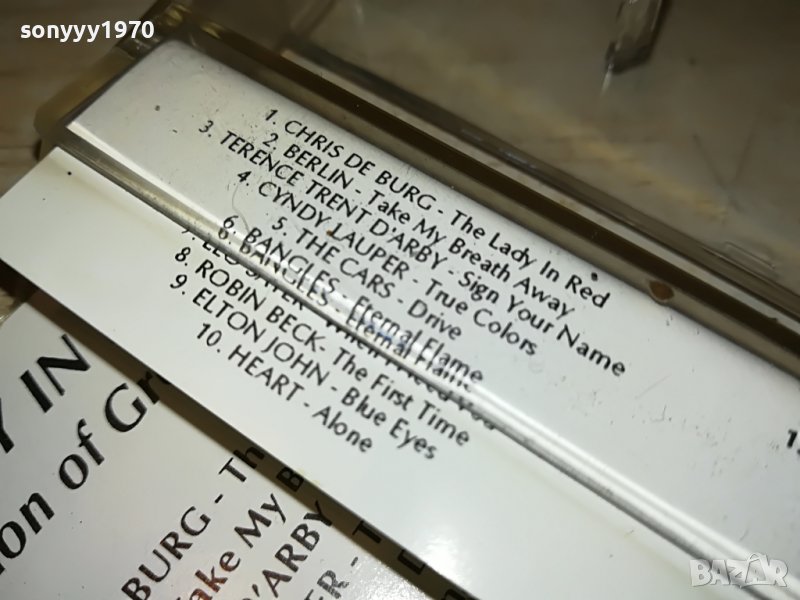 sonyyy1970
1. CHRIS DE BURG - The Lady In Red
2. BERLIN - Take My Breath Away
3. TERENCE TRENT D'ARBY - Sign Your Name
4. CYNDY LAUPER - True Colors
5. THE CARS - Drive
6. BANGLES - Eternal Flame
6. BANGLES - Eternal Flame
8. ROBIN BECK- The First Time
9. ELTON JOHN - Blue Eyes
10. HEART - Alone
Y IN
ion of Gr
BURG - Th
ake My B
D'ARBY
ER - T
BAZAR